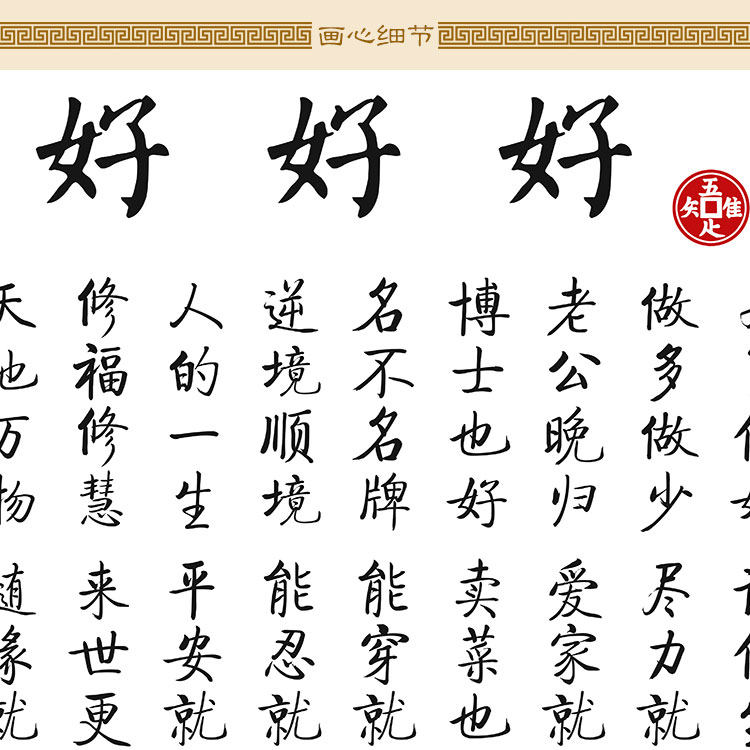 画心细节
好好好
吾唯知足
做多做少 尽力就
老公晚归 爱家就
博士也好 卖菜也
名不名牌 能穿就
逆境顺境 能忍就
人的一生 平安就
修福修慧 来世更
天地万物 随缘就